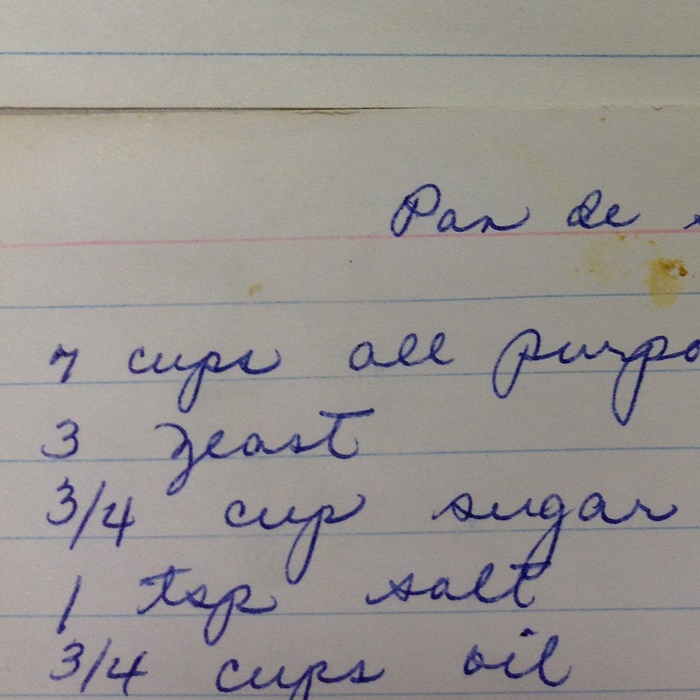 Pan de
7 cups all purpo
3 yeast
3/4 cup sugar
1 tsp salt
3/4 cups oil